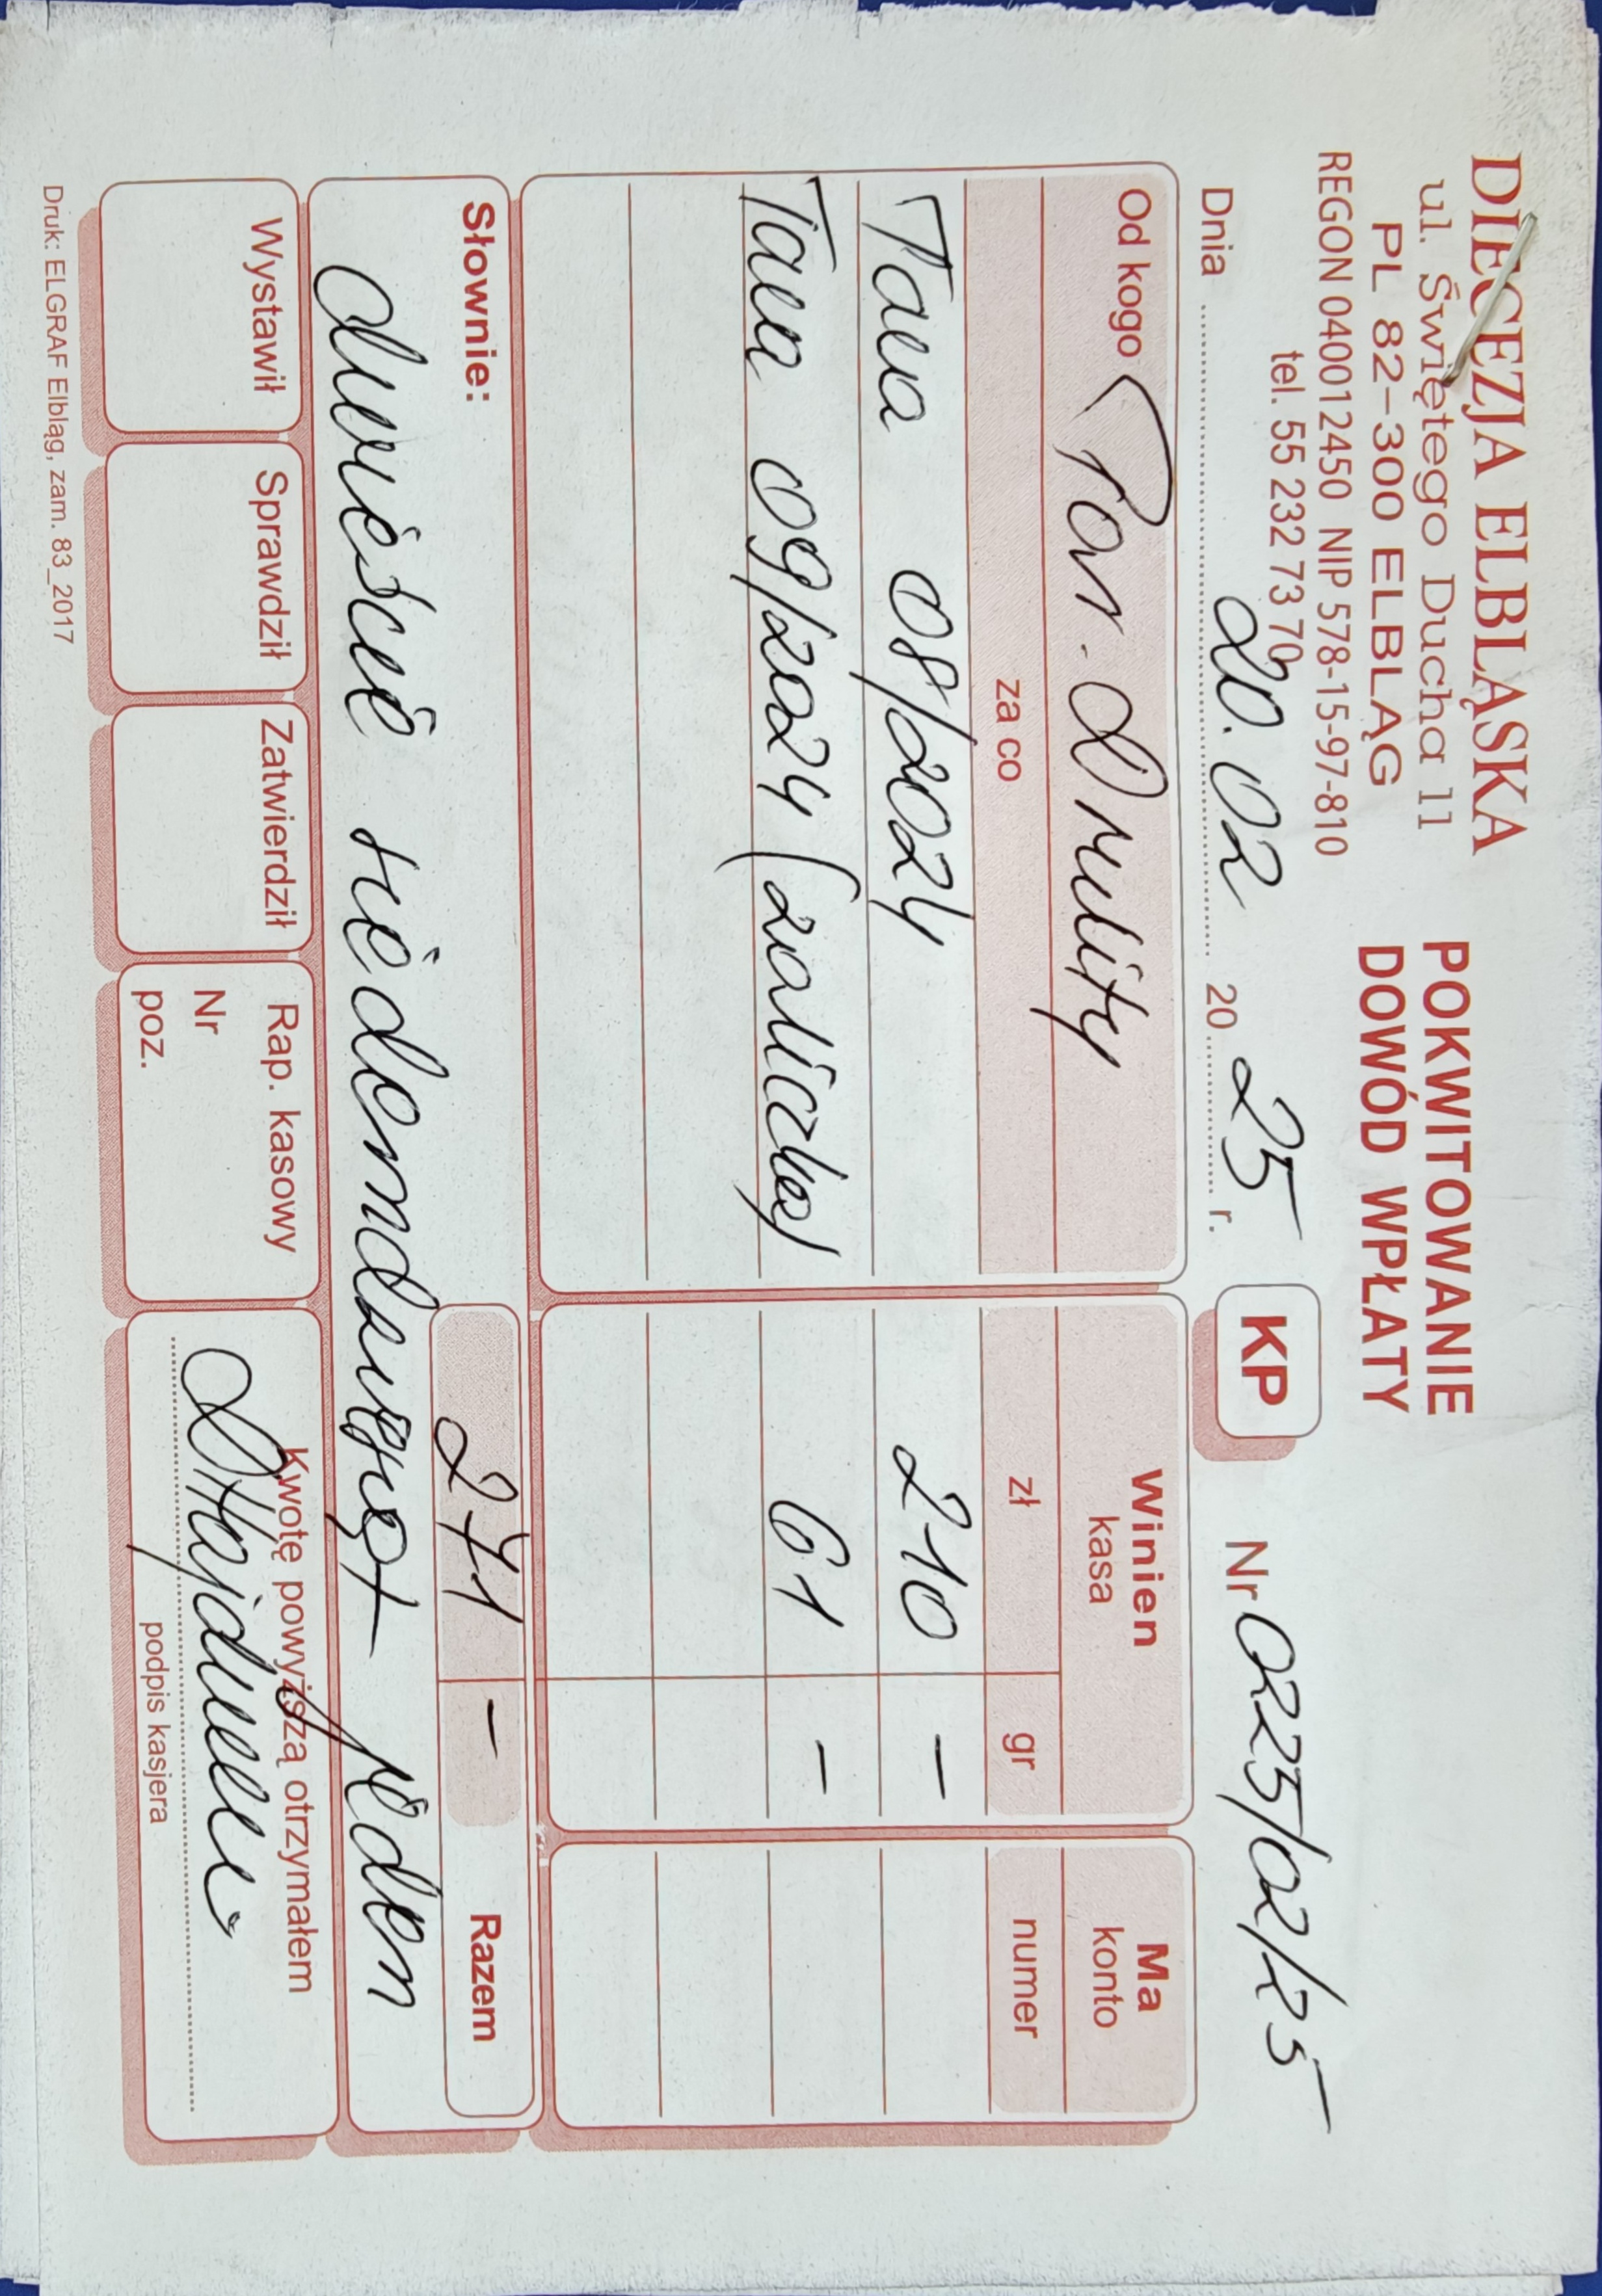 DIECEZJA ELBLĄSKA
ul. Świętego Ducha 11
PL 82-300 ELBLĄG
REGON 040012450 NIP 578-15-97-810
tel. 55 232 73 70
POKWITOWANIE
DOWÓD WPŁATY
Dnia 20.02 20 25 r.
KP
Nr 0225/02/25
Od kogo Par. Drulity
Winien
kasa
Ma
konto
za co
zł gr
numer
Taca 08/2024 210 -
Taca 09/2024 (zaliczka) 61 -
271 - Razem
Słownie:
dwieście siedemdziesiąt jeden
Wystawił
Sprawdził
Zatwierdził
Rap. kasowy
Nr
poz.
Kwotę powyższą otrzymałem
podpis kasjera
Druk: ELGRAF Elbląg, zam. 83_2017